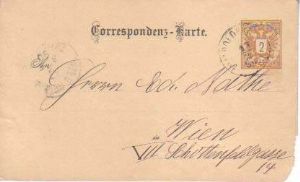 Correspondenz-Karte.
2
Herrn Ed. Nathe
Wien
VII Schottenfeldgasse
14